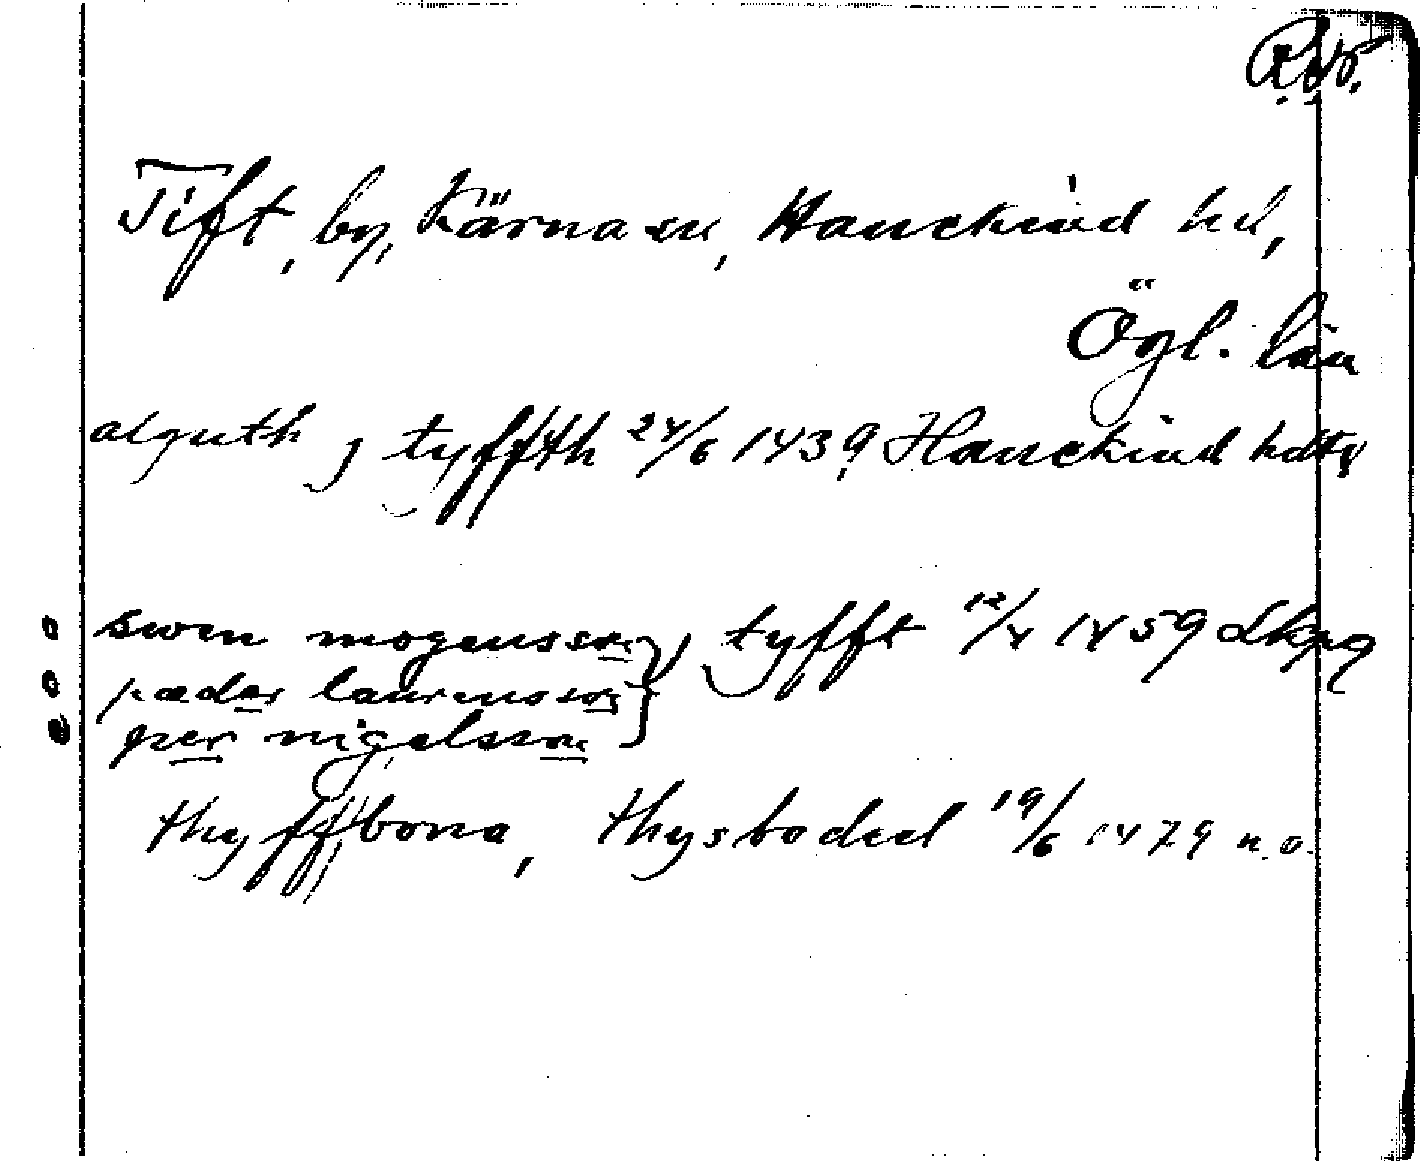 Tift, by, Kärna sn, Hanekind hd,
Ögl. län
alguth j tyffth 24/6 1439 Hanekind hdtg
swen mogensson, j tyfft 12/4 1459 Lkpg
pædar laurensson
per nigelsson
thyffbona, thysbodeel 19/6 1479 n.o.